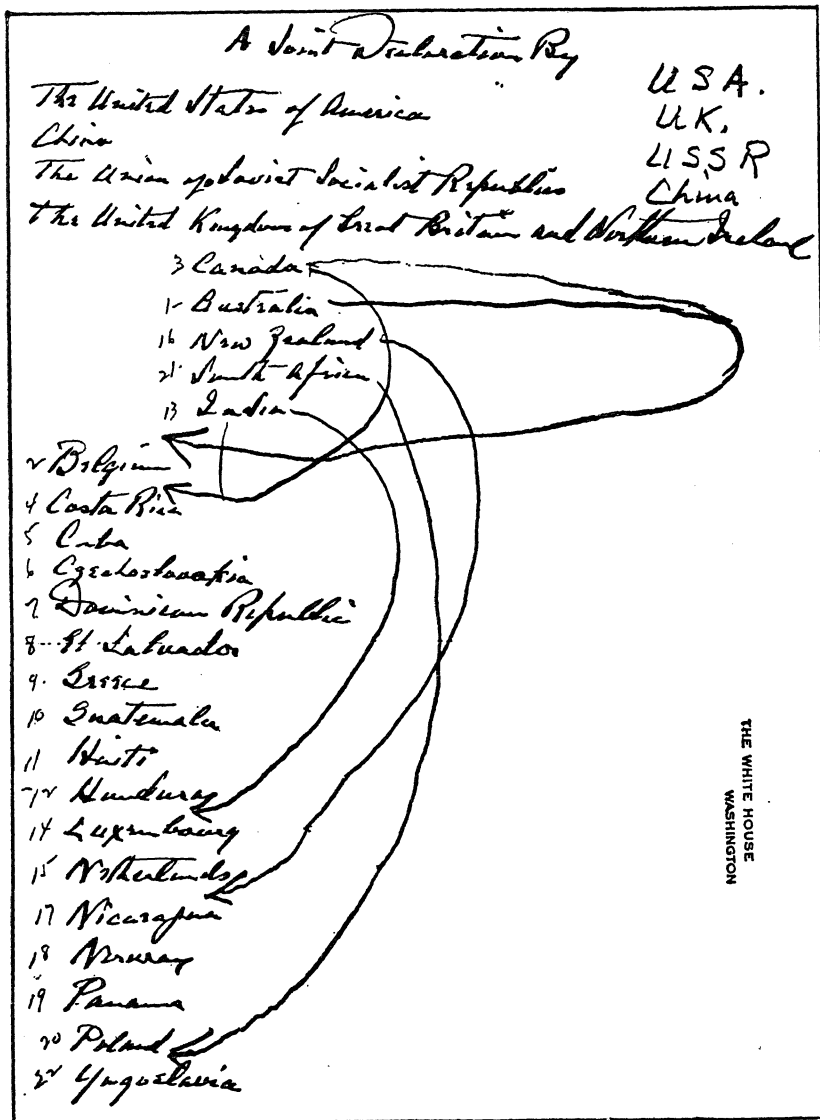 A Joint Declaration By
The United States of America
China
The Union of Soviet Socialist Republics
The United Kingdom of Great Britain and Northern Ireland
USA.
UK.
USSR
China
3 Canada
1 Australia
16 New Zealand
21 South Africa
13 India
2 Belgium
4 Costa Rica
5 Cuba
6 Czechoslovakia
7 Dominican Republic
8 El Salvador
9. Greece
10 Guatemala
11 Haiti
12 Honduras
14 Luxembourg
15 Netherlands
17 Nicaragua
18 Norway
19 Panama
20 Poland
22 Yugoslavia
THE WHITE HOUSE
WASHINGTON